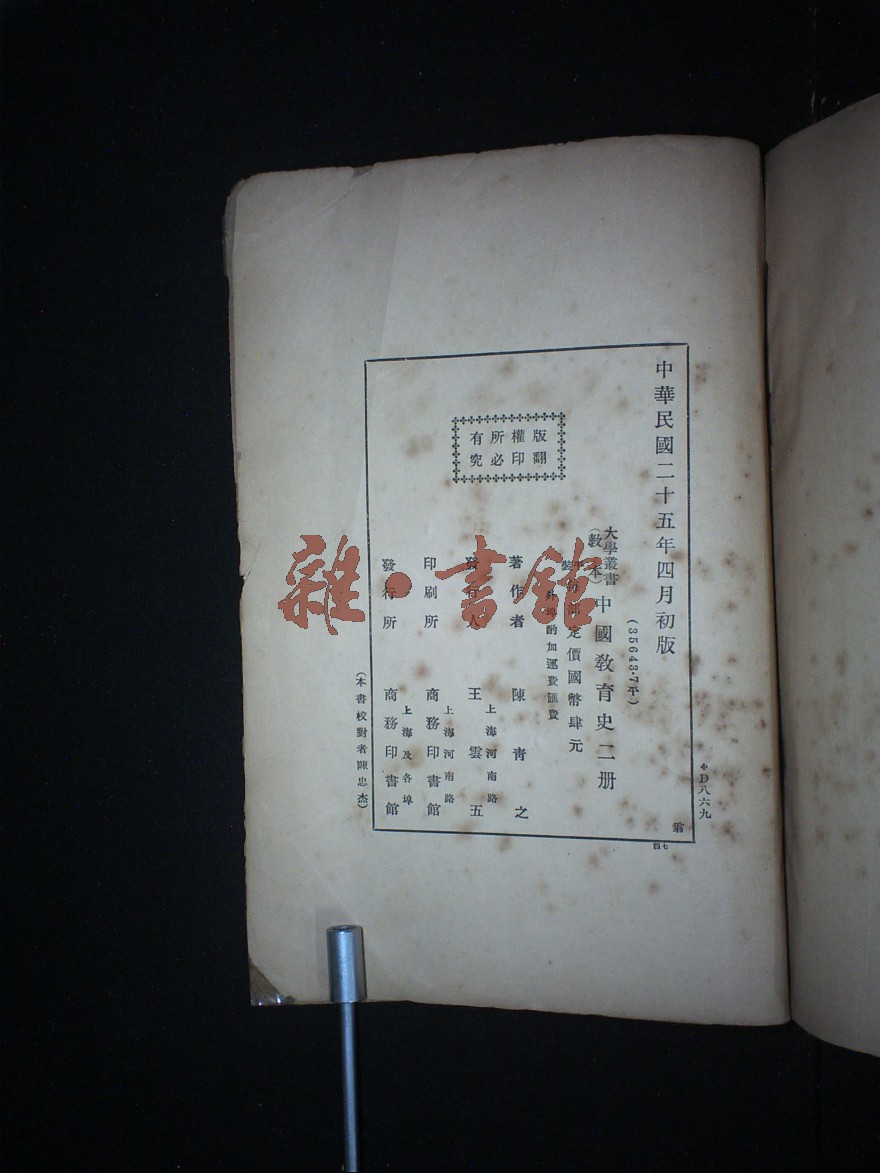 中華民國二十五年四月初版
(35643·7平)
大學叢書
(教本)
中國教育史二册
每部定價國幣肆元
外埠酌加運費匯費
版權所有
翻印必究
著作者 陳青之
上海河南路
發行人 王雲五
上海河南路
印刷所 商務印書館
上海及各埠
發行所 商務印書館
(本書校對者陳忠杰)
D八六九
翁
四七
雜·書館